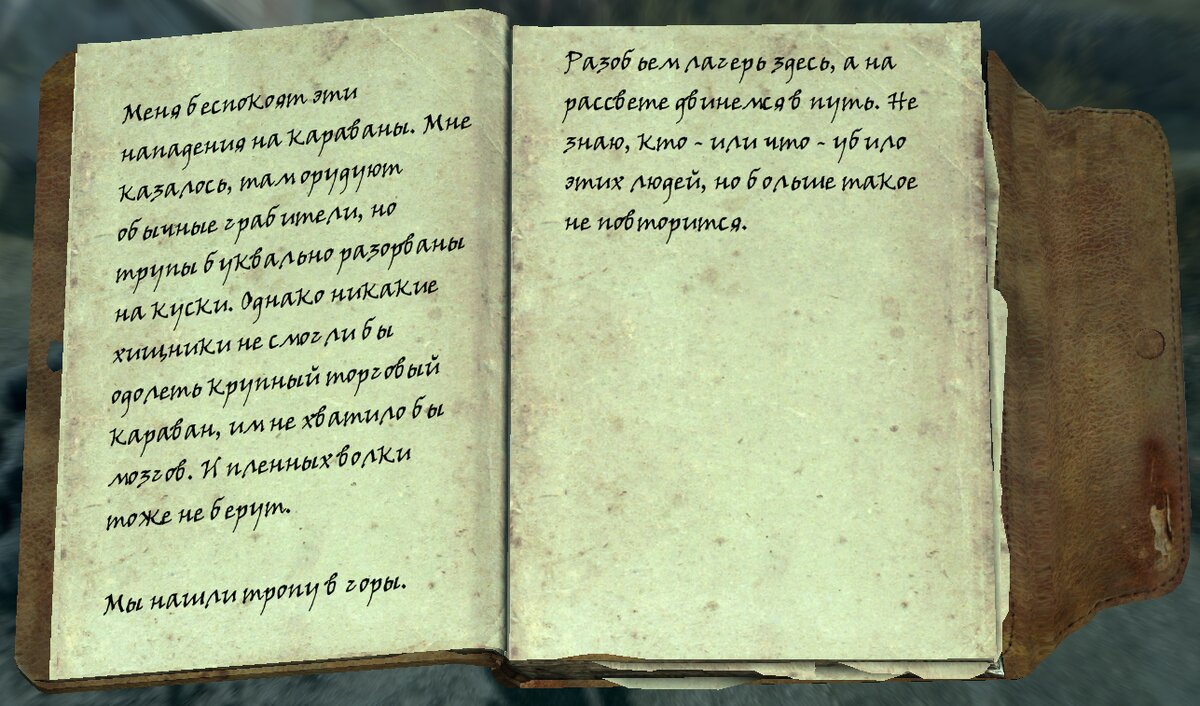 Меня беспокоят эти
нападения на караваны. Мне
казалось, там орудуют
обычные грабители, но
трупы буквально разорваны
на куски. Однако никакие
хищники не смогли бы
одолеть крупный торговый
караван, им не хватило бы
мозгов. И пленных волки
тоже не берут.
Мы нашли тропу в горы.
Разобьем лагерь здесь, а на
рассвете двинемся в путь. Не
знаю, кто - или что - убило
этих людей, но больше такое
не повторится.